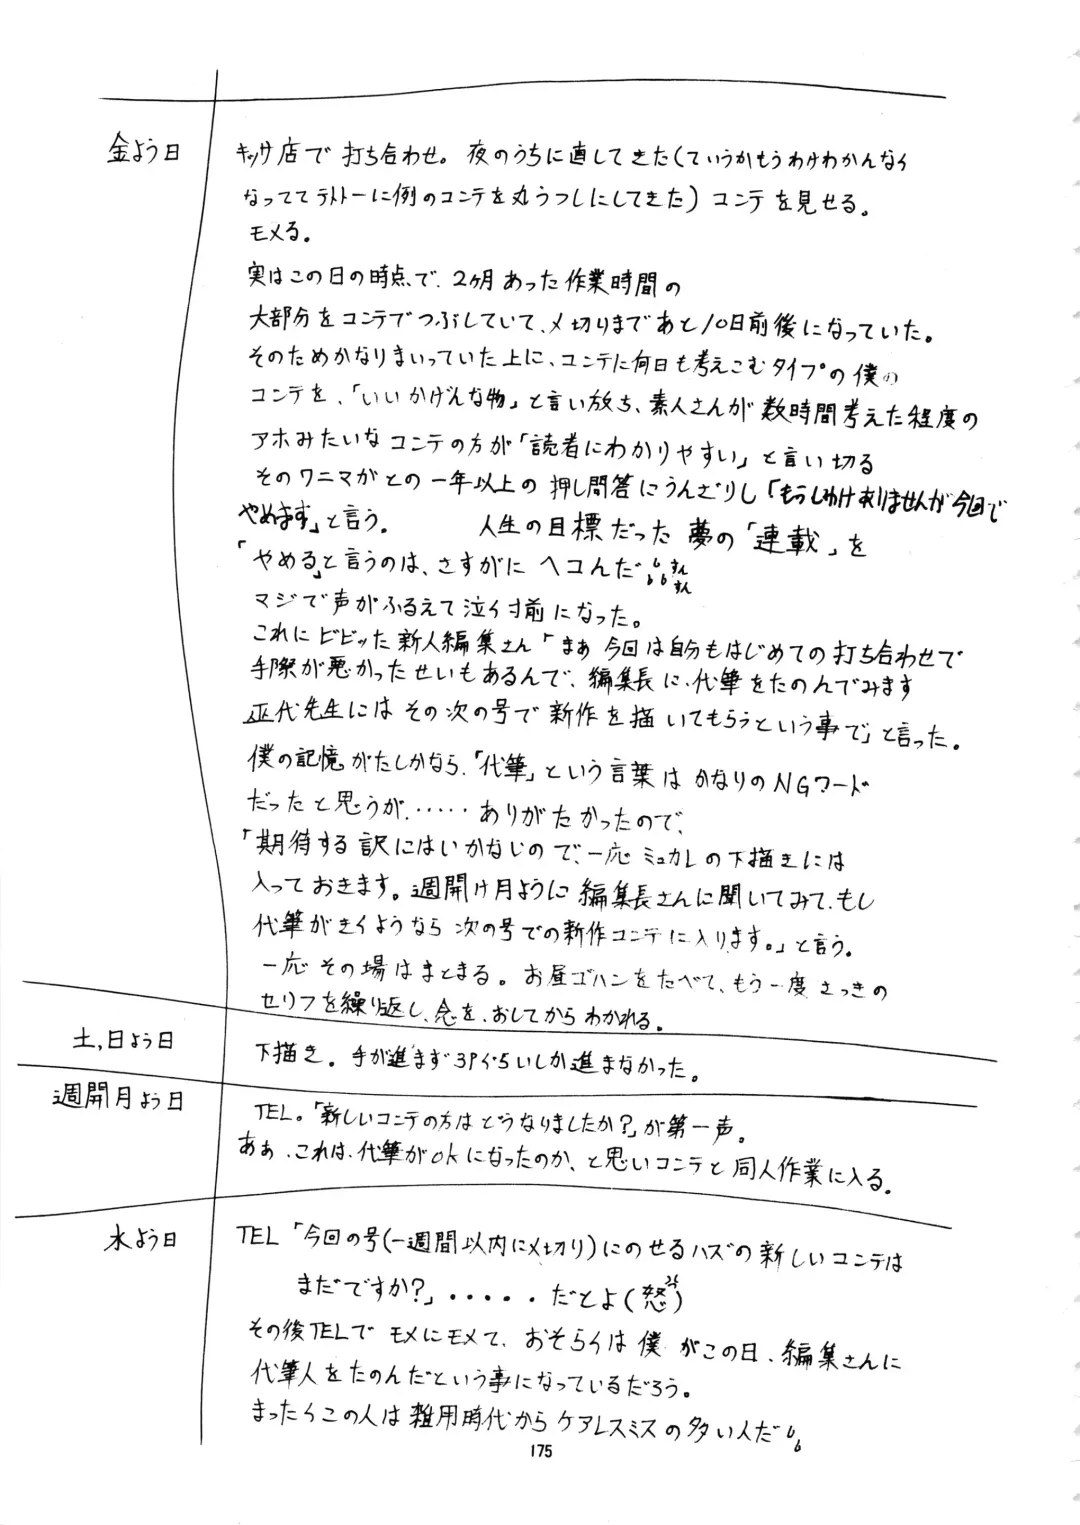 金よう日
キッサ店で打ち合わせ。夜のうちに直してきた(ていうかもうわけわかんなく
なっててテキトーに例のコンテを丸うつしにしてきた)コンテを見せる。
モメる。
実はこの日の時点で、2ヶ月あった作業時間の
大部分をコンテでつぶしていて、〆切りまであと10日前後になっていた。
そのためかなりまいっていた上に、コンテに何日も考えこむタイプの僕の
コンテを、「いいかげんな物」と言い放ち、素人さんが数時間考えた程度の
アホみたいなコンテの方が「読者にわかりやすい」と言い切る
そのワニマガとの一年以上の押し問答にうんざりし「もうしわけありませんが今回で
やめます」と言う。 人生の目標だった夢の「連載」を
「やめる」と言うのは、さすがにヘコんだ
すん
すん
マジで声がふるえて泣く寸前になった。
これにビビッた新人編集さん「まぁ今回は自分もはじめての打ち合わせで
手際が悪かったせいもあるんで、編集長に、代筆をたのんでみます
巫代先生にはその次の号で新作を描いてもらうという事で」と言った。
僕の記憶がたしかなら、「代筆」という言葉はかなりのNGワード
だったと思うが、・・・・・ありがたかったので、
「期待する訳にはいかないので、一応ミュカレの下描きには
入っておきます。週開け月ように編集長さんに聞いてみて、もし
代筆がきくようなら次の号での新作コンテに入ります。」と言う。
一応その場はまとまる。お昼ゴハンをたべて、もう一度さっきの
セリフを繰り返し、念を、おしてからわかれる。
土,日よう日
下描き。手が進まず3Pぐらいしか進まなかった。
週開月よう日
TEL。「新しいコンテの方はどうなりましたか?」が第一声。
ああ、これは、代筆がokになったのか、と思いコンテと同人作業に入る。
水よう日
TEL「今回の号(一週間以内に〆切り)にのせるハズの新しいコンテは
まだですか?」・・・・・だとよ(怒)
その後TELでモメにモメて、おそらくは僕がこの日、編集さんに
代筆人をたのんだという事になっているだろう。
まったくこの人は雑用時代からケアレスミスの多い人だ
175